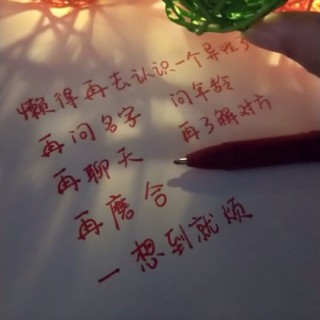 懒得再去认识一个异性了
再问名字 问年龄
再聊天 再了解对方
再磨合
一想到就烦